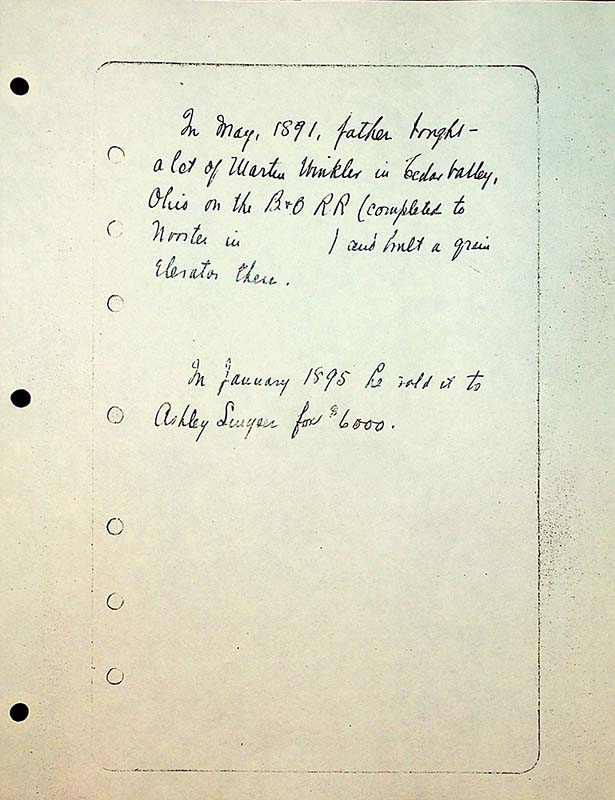 In May, 1891, father bought
a lot of Martin Winkler in Cedar Valley,
Ohio on the B+O RR (completed to
Wooster in ) and built a grain
Elevator there.
In January 1895 he sold it to
Ashley for $6000.